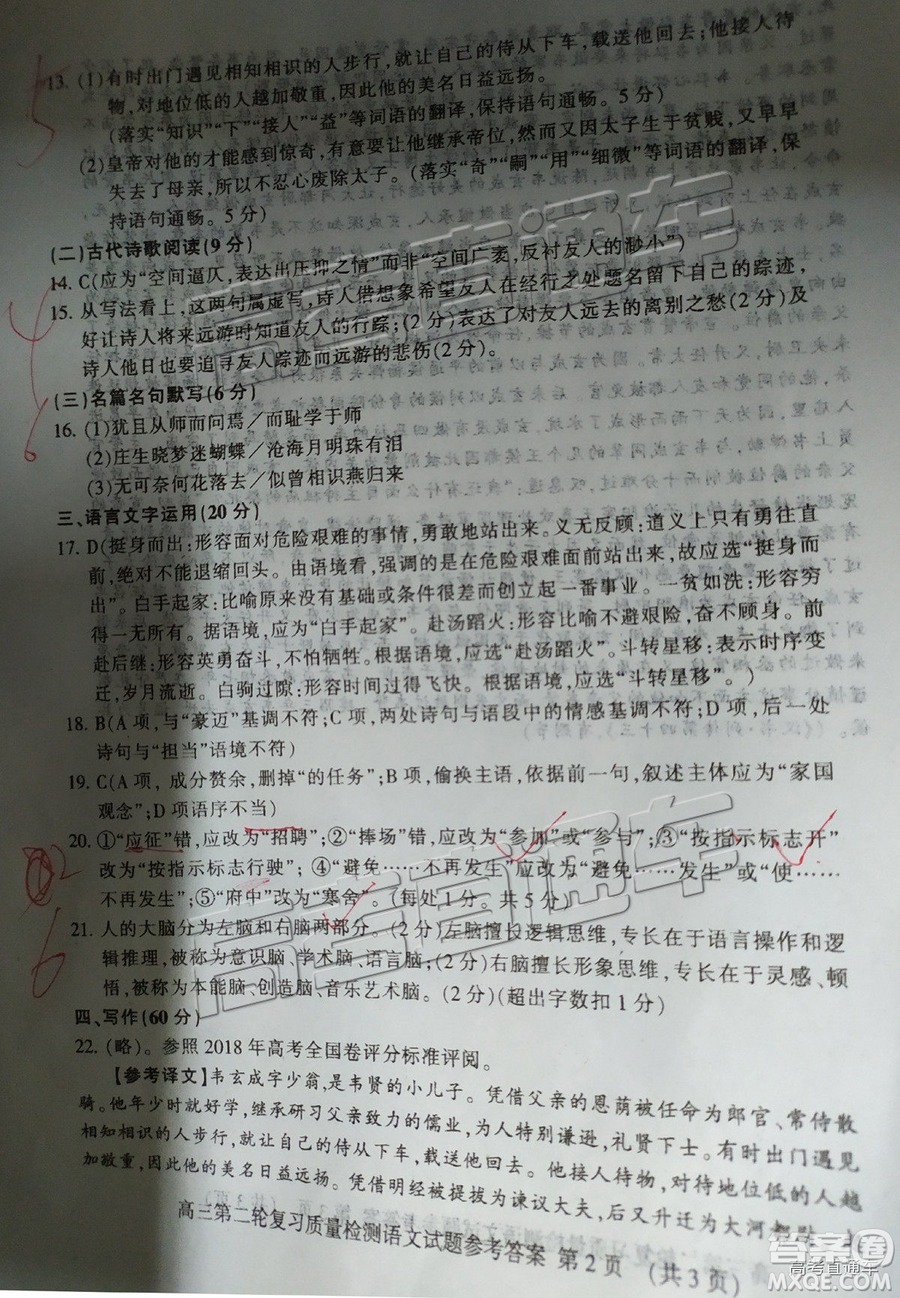 13. (1)有时出门遇见相知相识的人步行,就让自己的侍从下车,载送他回去;他接人待
物,对地位低的人越加敬重,因此他的美名日益远扬。
(落实“知识”“下”“接人”“益”等词语的翻译,保持语句通畅。5 分)
(2)皇帝对他的才能感到惊奇,有意想让他继承帝位,然而又因太子生于贫贱,又早早
失去了母亲,所以不忍心废除太子。(落实“奇”“嗣”“用”“细微”等词语的翻译,保
持语句通畅。5 分)
(二)古代诗歌阅读(9 分)
14. C(应为“空间逼仄,表达出压抑之情”而非“空间广袤,反衬友人的渺小”)
15. 从写法看上,这两句属虚写,诗人借想象希望友人在经行之处题名留下自己的踪迹,
好让诗人将来远游时知道友人的行踪;(2 分)表达了对友人远去的离别之愁(2 分)及
诗人他日也要追寻友人踪迹而远游的悲伤(2 分)。
(三)名篇名句默写(6 分)
16. (1)犹且从师而问焉/而耻学于师
(2)庄生晓梦迷蝴蝶/沧海月明珠有泪
(3)无可奈何花落去/似曾相识燕归来
三、语言文字运用(20 分)
17. D(挺身而出:形容面对危险艰难的事情,勇敢地站出来。义无反顾:道义上只有勇往直
前,绝对不能退缩回头。由语境看,强调的是在危险艰难面前站出来,故应选“挺身而
出”。白手起家:比喻原来没有基础或条件很差而创立起一番事业。一贫如洗:形容穷
得一无所有。据语境,应为“白手起家”。赴汤蹈火:形容比喻不避艰险,奋不顾身。前
赴后继:形容英勇奋斗,不怕牺牲。根据语境,应选“赴汤蹈火”。斗转星移:表示时序变
迁,岁月流逝。白驹过隙:形容时间过得飞快。根据语境,应选“斗转星移”。)
18. B(A 项,与“豪迈”基调不符;C 项,两处诗句与语段中的情感基调不符;D 项,后一处
诗句与“担当”语境不符)
19. C(A 项, 成分赘余,删掉“的任务”;B 项,偷换主语,依据前一句,叙述主体应为“家国
观念”;D 项语序不当)
20. ①“应征”错,应改为“招聘”;②“捧场”错,应改为“参加”或“参与”;③“按指示标志开”
改为“按指示标志行驶”; ④“避免……不再发生”应改为“避免……发生”或“使……
不再发生”;⑤“府中”改为“寒舍”。(每处 1 分。共 5 分)
21. 人的大脑分为左脑和右脑两部分。(2 分)左脑擅长逻辑思维,专长在于语言操作和逻
辑推理,被称为意识脑、学术脑、语言脑;(2 分)右脑擅长形象思维,专长在于灵感、顿
悟,被称为本能脑、创造脑、音乐艺术脑。(2 分)(超出字数扣 1 分)
四、写作(60 分)
22. (略)。参照 2018 年高考全国卷评分标准评阅。
【参考译文】韦玄成字少翁,是韦贤的小儿子。凭借父亲的恩荫被任命为郎官、常侍散
骑。他年少时就好学,继承研习父亲致力的儒业,为人特别谦逊,礼贤下士。有时出门遇见
相知相识的人步行,就让自己的侍从下车,载送他回去。他接人待物,对地位低的人越
加敬重,因此他的美名日益远扬。凭借明经被提拔为谏议大夫,后升迁为大河都尉。
高三第二轮复习质量检测语文试题参考答案 第 2 页 (共 3 页)
高考直通车
高考直通车
答案圈
高考直通车
MXQE.COM